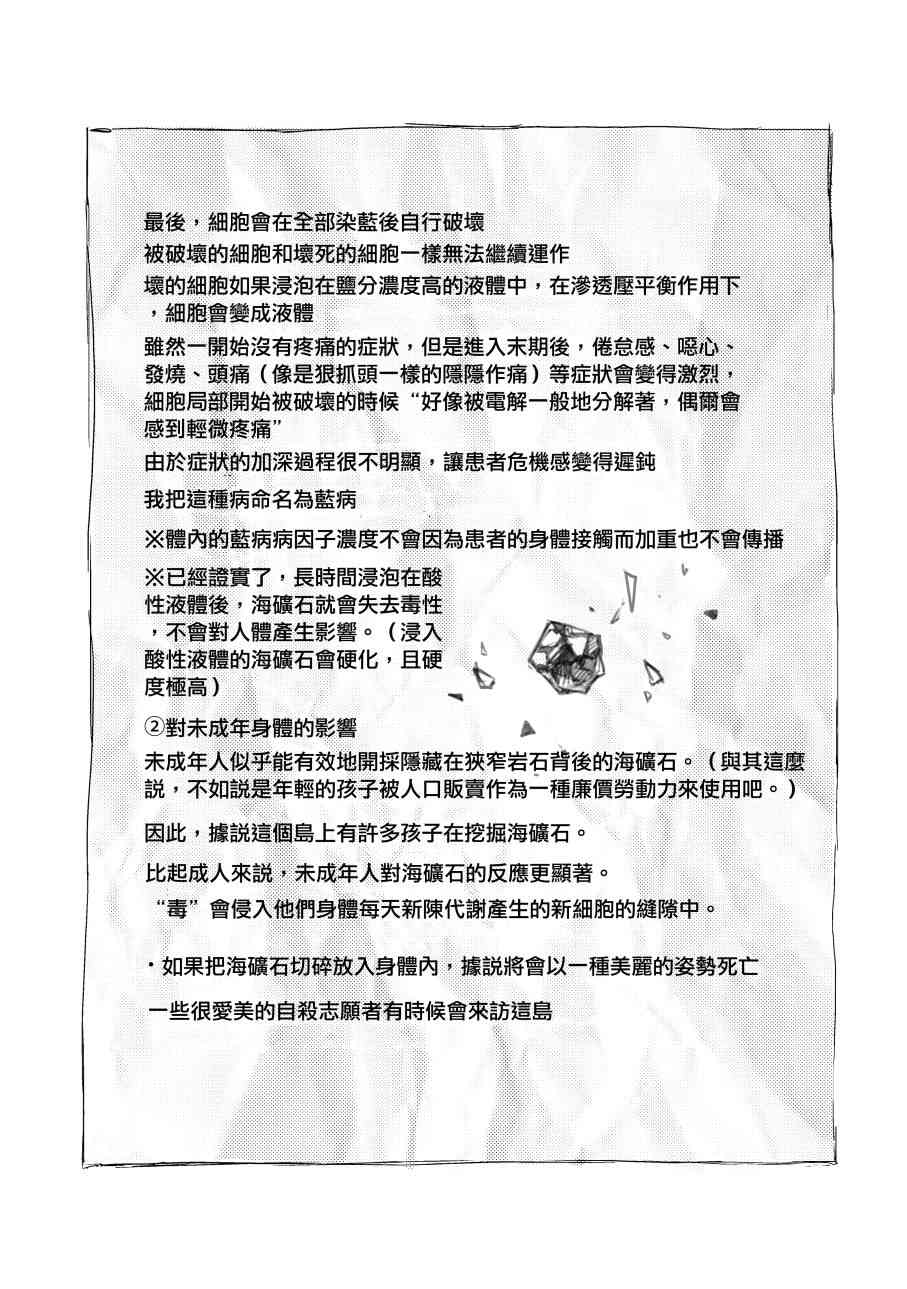 最後，細胞會在全部染藍後自行破壞
被破壞的細胞和壞死的細胞一樣無法繼續運作
壞的細胞如果浸泡在鹽分濃度高的液體中，在滲透壓平衡作用下
，細胞會變成液體
雖然一開始沒有疼痛的症狀，但是進入末期後，倦怠感、噁心、
發燒、頭痛（像是狠抓頭一樣的隱隱作痛）等症狀會變得激烈，
細胞局部開始被破壞的時候“好像被電解一般地分解著，偶爾會
感到輕微疼痛”
由於症狀的加深過程很不明顯，讓患者危機感變得遲鈍
我把這種病命名為藍病
※體內的藍病病因子濃度不會因為患者的身體接觸而加重也不會傳播
※已經證實了，長時間浸泡在酸
性液體後，海礦石就會失去毒性
，不會對人體產生影響。（浸入
酸性液體的海礦石會硬化，且硬
度極高）
②對未成年身體的影響
未成年人似乎能有效地開採隱藏在狹窄岩石背後的海礦石。（與其這麼
説，不如説是年輕的孩子被人口販賣作為一種廉價勞動力來使用吧。）
因此，據説這個島上有許多孩子在挖掘海礦石。
比起成人來説，未成年人對海礦石的反應更顯著。
“毒”會侵入他們身體每天新陳代謝產生的新細胞的縫隙中。
・如果把海礦石切碎放入身體內，據説將會以一種美麗的姿勢死亡
一些很愛美的自殺志願者有時候會來訪這島